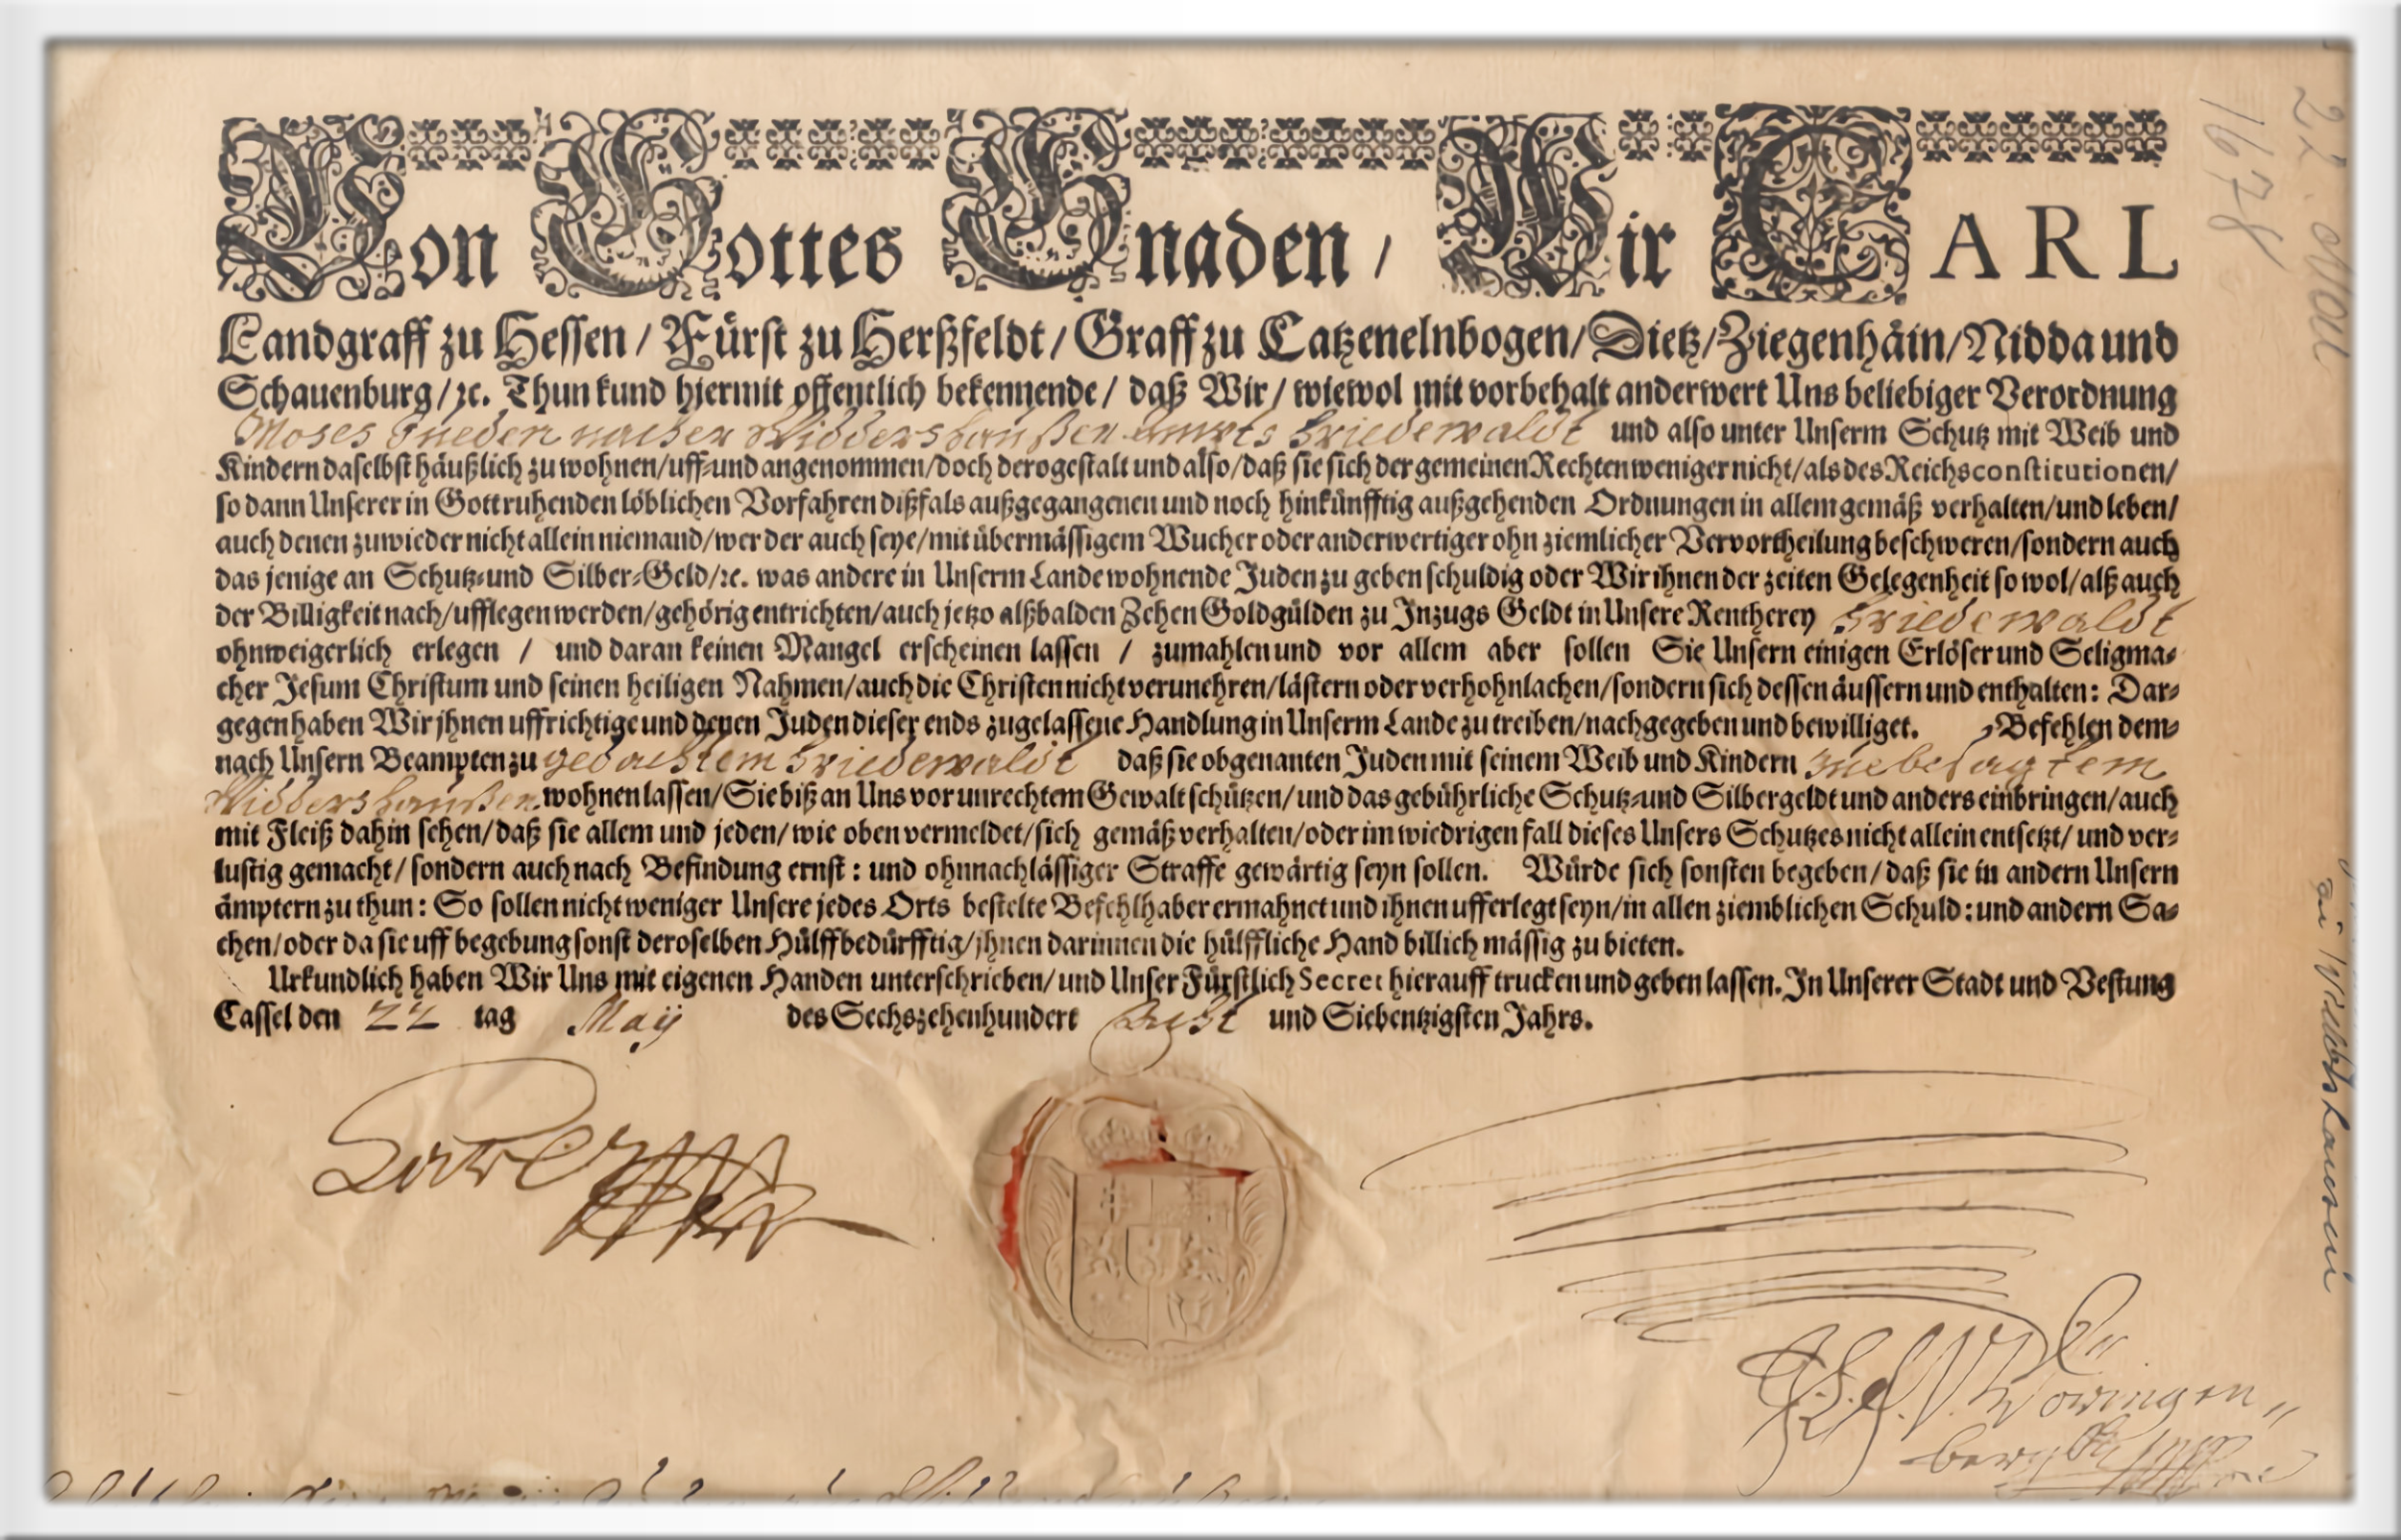 Von Gottes Gnaden / Wir CARL
Landgraff zu Hessen / Fürst zu Herßfeldt / Graff zu Catzenelnbogen / Dietz / Ziegenhäin / Nidda und
Schauenburg / ꝛc. Thun kund hiermit offentlich bekennende / daß Wir / wiewol mit vorbehalt anderwert Uns beliebiger Verordnung
Moses Widdershaußen Ampts Friedewaldt und also unter Unserm Schutz mit Weib und
Kindern daselbst häußlich zu wohnen / uff- und angenommen / doch derogestalt und also / daß sie sich der gemeinen Rechten weniger nicht / als des Reichs constitutionen /
so dann Unserer in Gott ruhenden löblichen Vorfahren dißfals außgegangenen und noch hinkünfftig außgehenden Ordnungen in allem gemäß verhalten / und leben /
auch denen zuwieder nicht allein niemand / wer der auch seye / mit übermässigem Wucher oder anderwertiger ohnziemlicher Vervortheilung beschweren / sondern auch
das jenige an Schutz- und Silber-Geld / ꝛc. was andere in Unserm Lande wohnende Juden zu geben schuldig oder Wir ihnen der zeiten Gelegenheit so wol / alß auch
der Billigkeit nach / ufflegen werden / gehörig entrichten / auch jetzo alßbalden Zehen Goldgülden zu Inzugs Geldt in Unsere Rentherey Friedewaldt
ohnweigerlich erlegen / und daran keinen Mangel erscheinen lassen / zumahlen und vor allem aber sollen Sie Unsern einigen Erlöser und Seligma-
cher Jesum Christum und seinen heiligen Nahmen / auch die Christen nicht verunehren / lästern oder verhohnlachen / sondern sich dessen äussern und enthalten: Dar-
gegen haben Wir jhnen uffrichtige und denen Juden dieser ends zugelassene Handlung in Unserm Lande zu treiben / nachgegeben und bewilliget. Befehlen dem-
nach Unsern Beampten zu gedachtem Friedewaldt daß sie obgenanten Juden mit seinem Weib und Kindern zue besagtem
Widdershaußen wohnen lassen / Sie biß an Uns vor unrechtem Gewalt schützen / und das gebührliche Schutz- und Silbergeldt und anders einbringen / auch
mit Fleiß dahin sehen / daß sie allem und jeden / wie oben vermeldet / sich gemäß verhalten / oder im wiedrigen fall dieses Unsers Schutzes nicht allein entsetzt / und ver-
lustig gemacht / sondern auch nach Befindung ernst: und ohnnachlässiger Straffe gewärtig seyn sollen. Würde sich sonsten begeben / daß sie in andern Unsern
ämptern zu thun: So sollen nicht weniger Unsere jedes Orts bestelte Befehlhaber ermahnet und ihnen ufferlegt seyn / in allen ziemblichen Schuld: und andern Sa-
chen / oder da sie uff begebung sonst deroselben Hülff bedürfftig / jhnen darinnen die hülffliche Hand billich mässig zu bieten.
Urkundlich haben Wir Uns mit eigenen Handen unterschrieben / und Unser Fürstlich Secret hierauff trucken und geben lassen. In Unserer Stadt und Vestung
Cassel den 22 tag Maij des Sechszehenhundert Acht und Siebentzigsten Jahrs.
22. Mai
1678